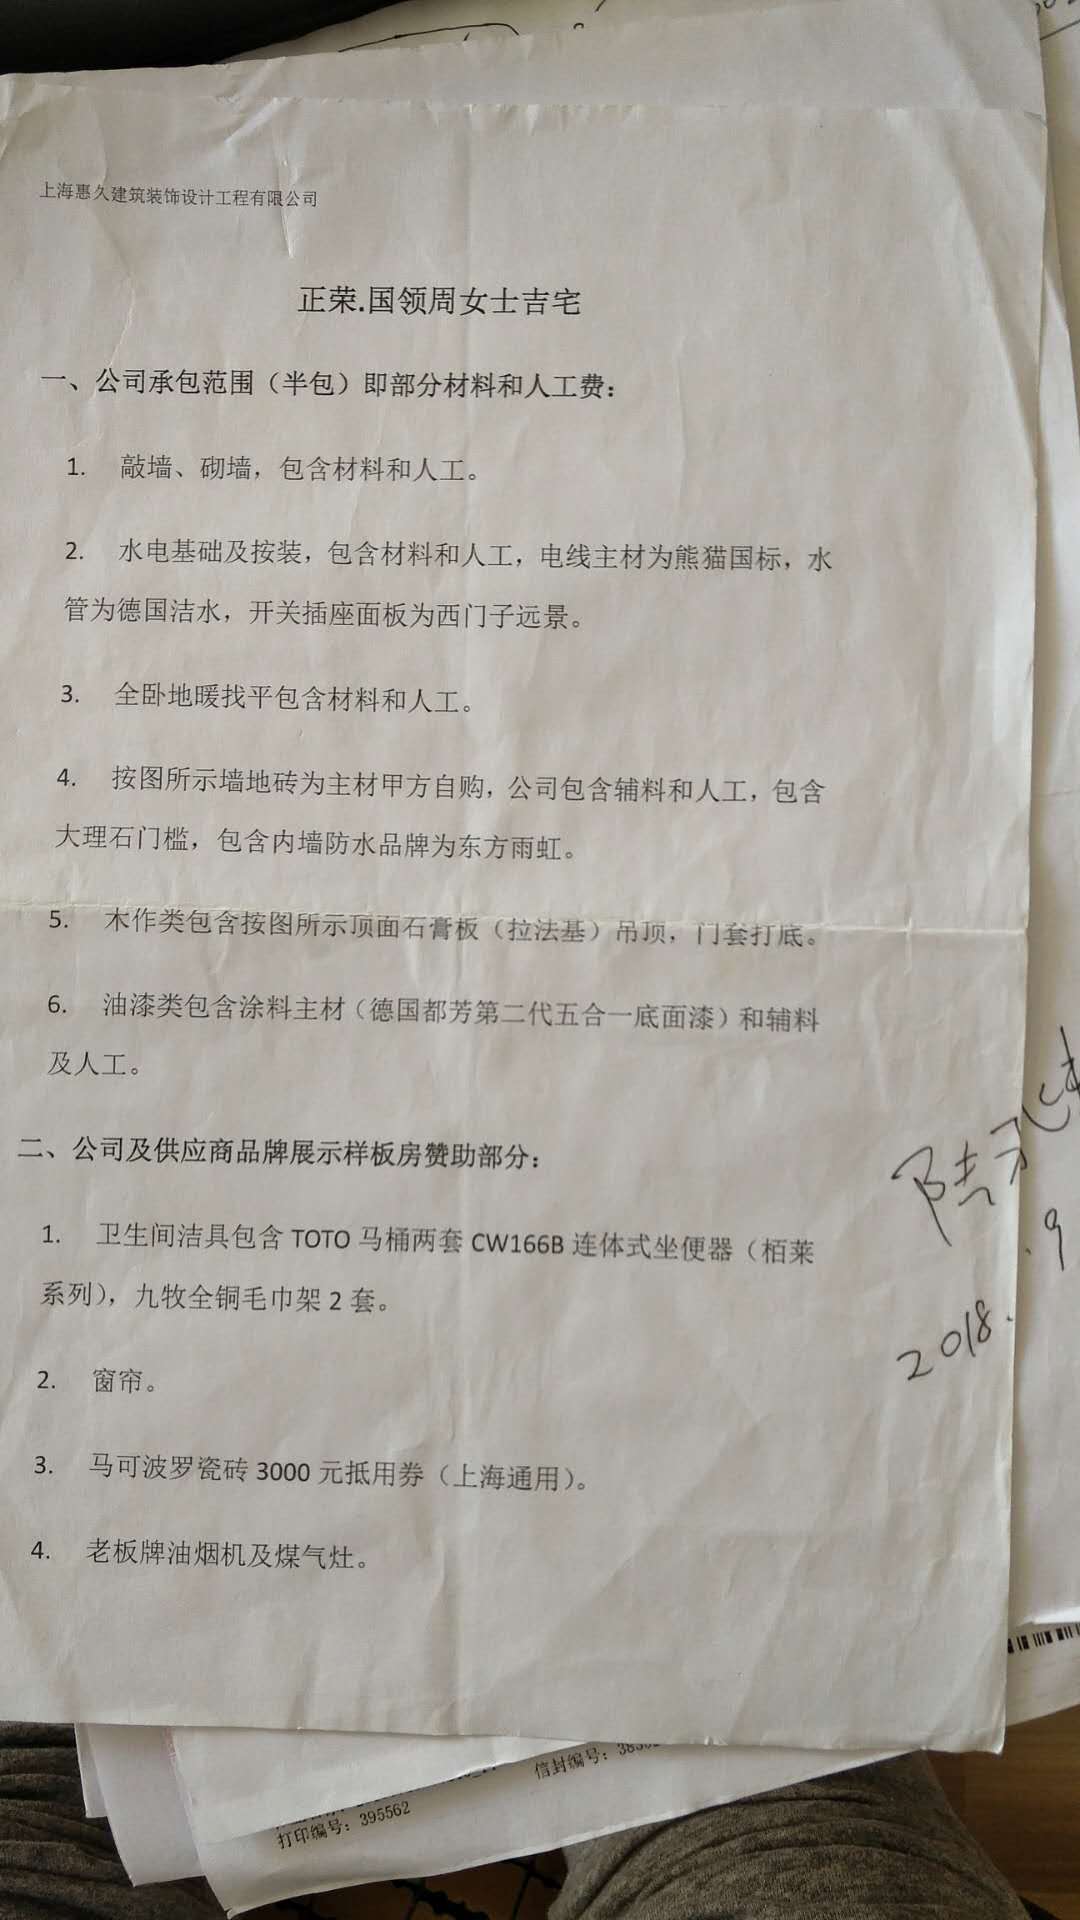 上海惠久建筑装饰设计工程有限公司
正荣.国领周女士吉宅
一、公司承包范围（半包）即部分材料和人工费：
1. 敲墙、砌墙，包含材料和人工。
2. 水电基础及按装，包含材料和人工，电线主材为熊猫国标，水
管为德国洁水，开关插座面板为西门子远景。
3. 全卧地暖找平包含材料和人工。
4. 按图所示墙地砖为主材甲方自购，公司包含辅料和人工，包含
大理石门槛，包含内墙防水品牌为东方雨虹。
5. 木作类包含按图所示顶面石膏板（拉法基）吊顶，门套打底。
6. 油漆类包含涂料主材（德国都芳第二代五合一底面漆）和辅料
及人工。
二、公司及供应商品牌展示样板房赞助部分：
1. 卫生间洁具包含 TOTO 马桶两套 CW166B 连体式坐便器（栢莱
系列），九牧全铜毛巾架 2 套。
2. 窗帘。
3. 马可波罗瓷砖 3000 元抵用券（上海通用）。
4. 老板牌油烟机及煤气灶。
陆
2018.
.9
信封编号：
打印编号：395562